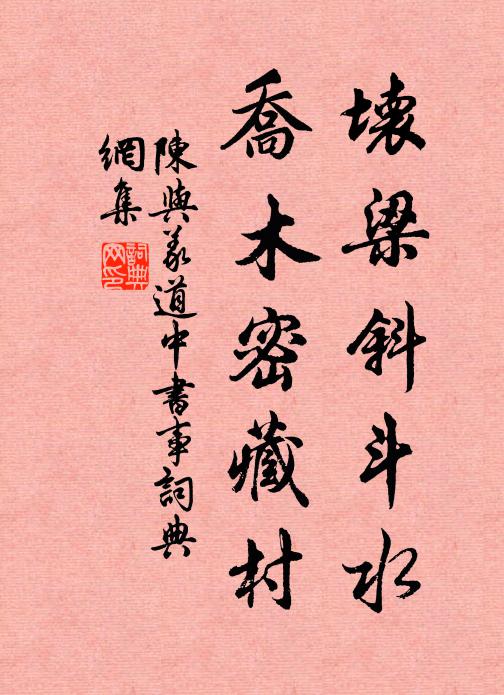 壞梁斜斗水
喬木密藏村
陳與義道中書事詞典
網集
詞典
网印